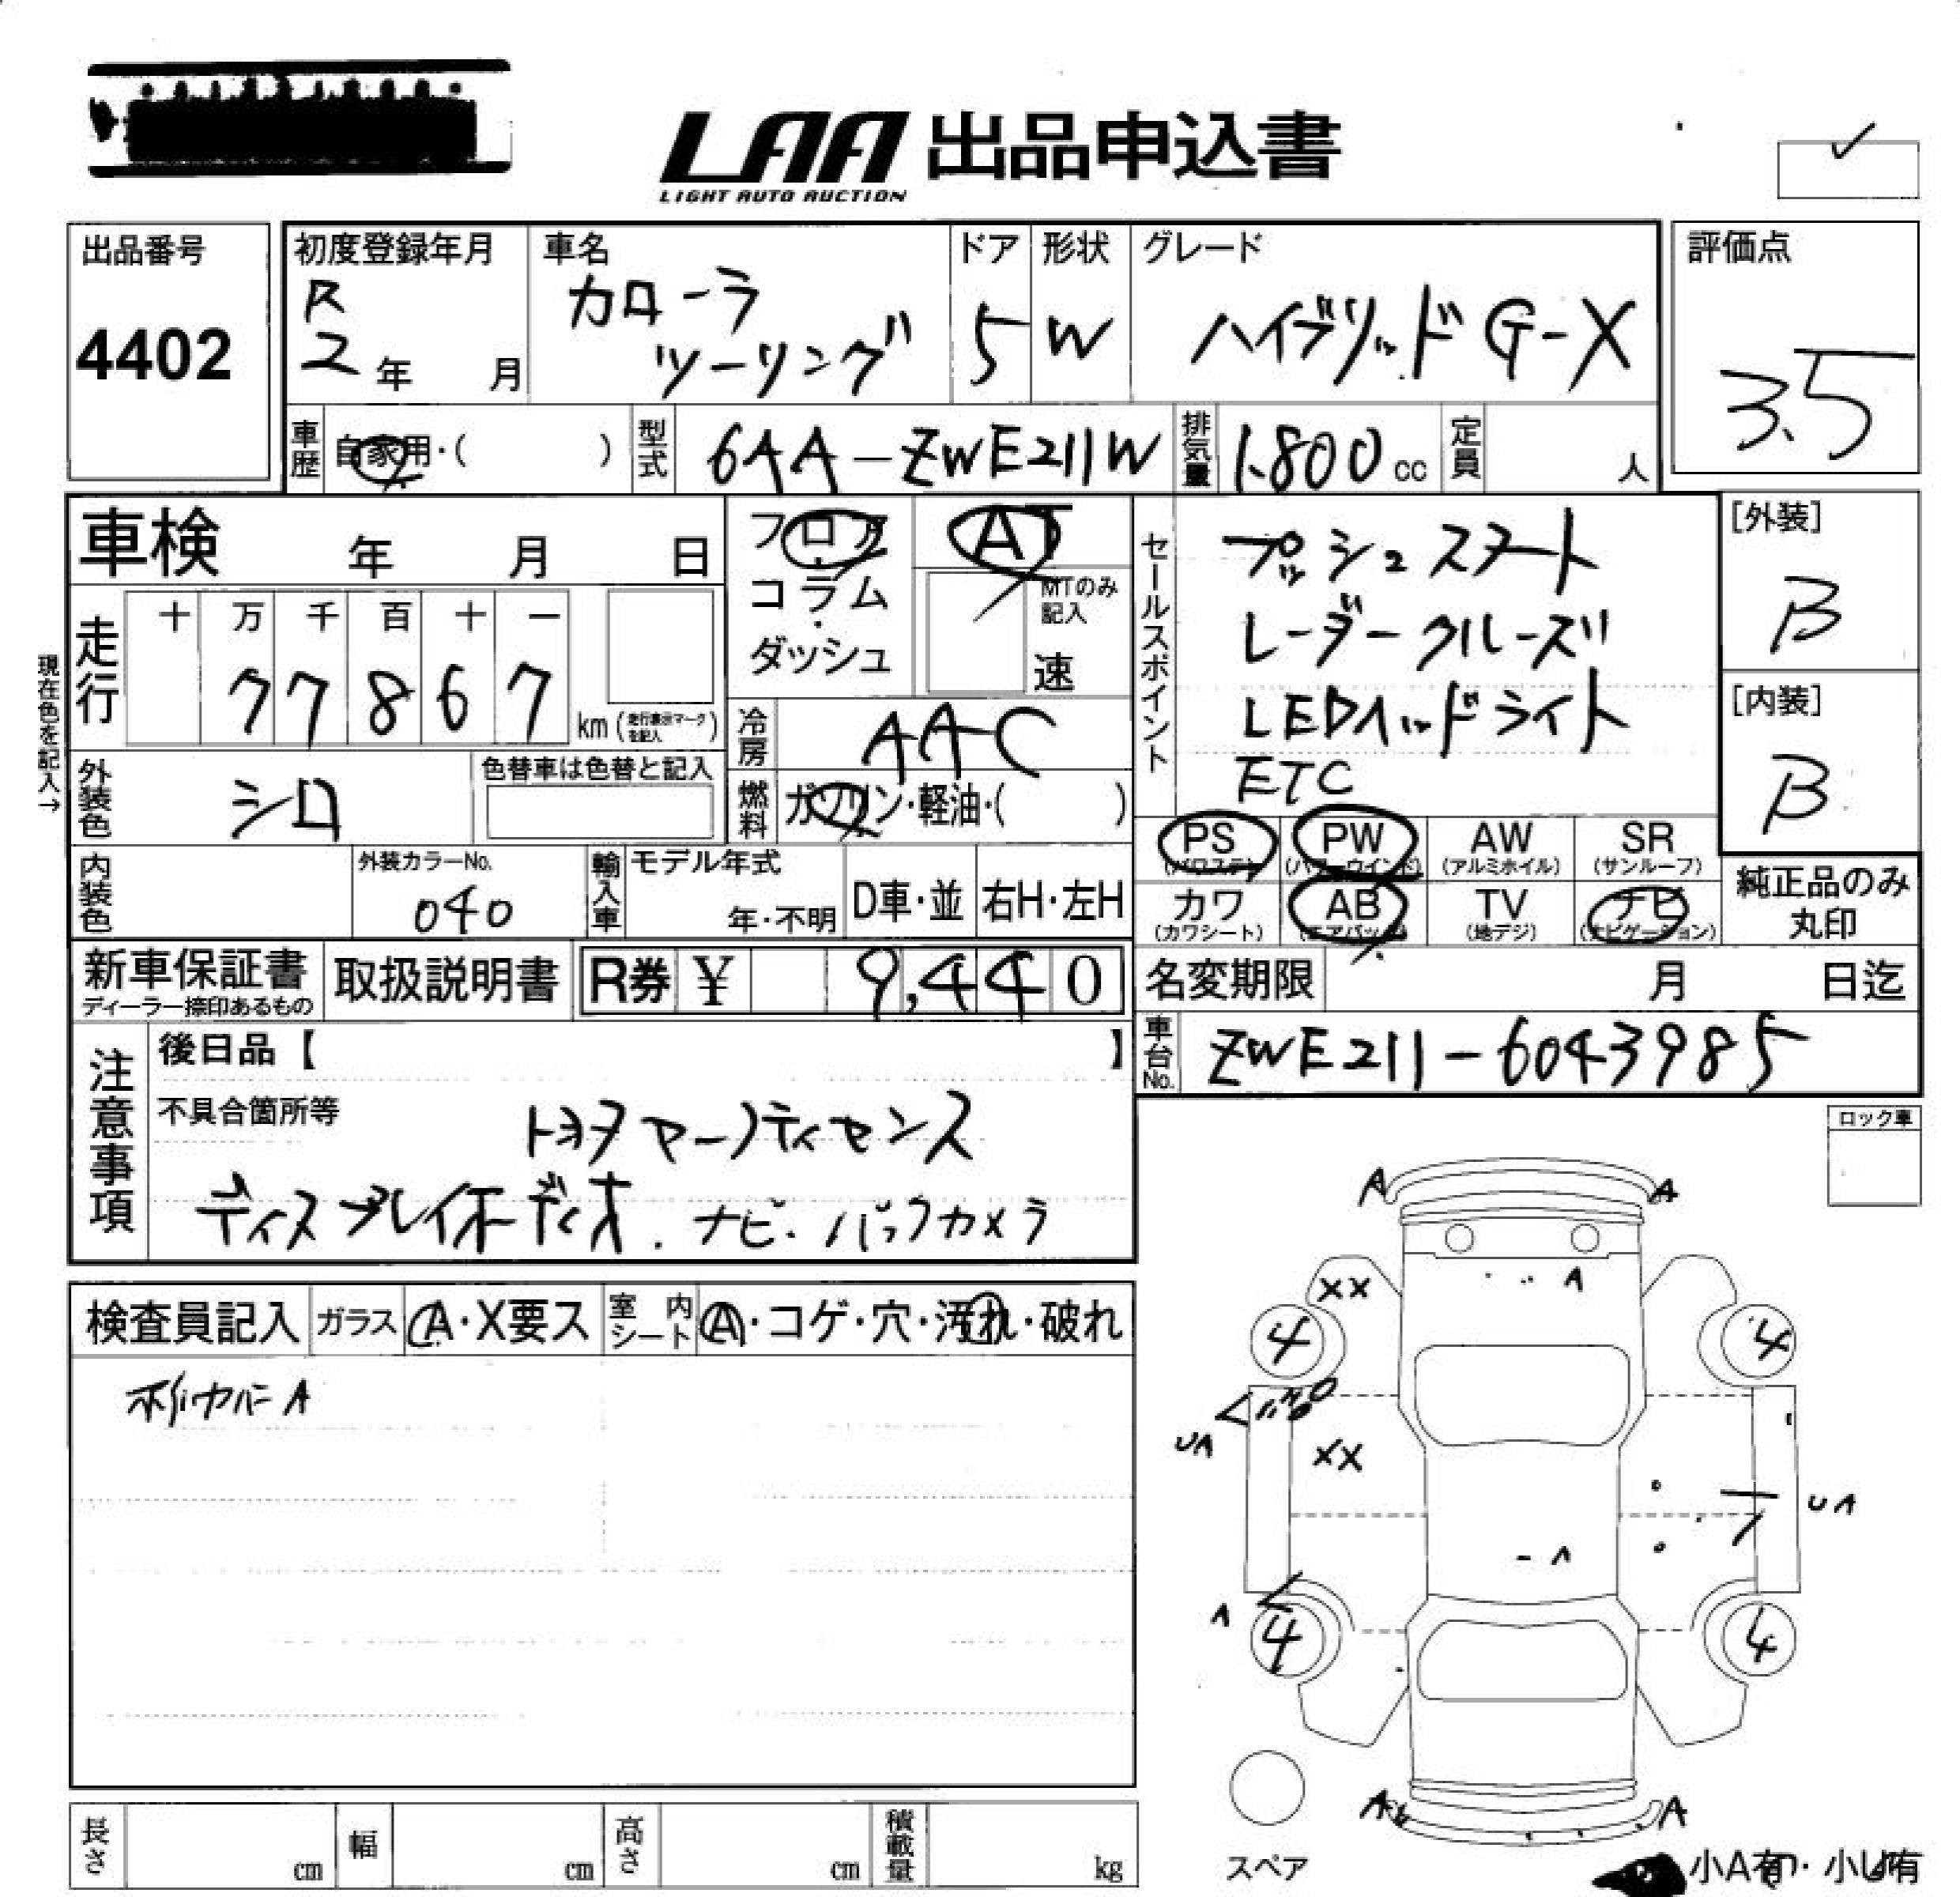 LAA 出品申込書
LIGHT AUTO AUCTION
出品番号
4402
初度登録年月
R
2年 月
車名
カローラ
ツーリング
ドア
5
形状
W
グレード
ハイブリッド G-X
評価点
3.5
車歴
自家用・( )
型式
6AA-ZWE211W
排気量
1.800 cc
定員
人
車検 年 月 日
フロア
コラム
ダッシュ
AT
MTのみ
記入
速
セールスポイント
プッシュスタート
レーダークルーズ
LEDヘッドライト
ETC
[外装]
B
[内装]
B
現在色を記入→
走行
十 万 千 百 十 一
7 7 8 6 7
km (走行表示マークを記入)
冷房
AAC
外装色
シロ
色替車は色替と記入
燃料
ガソリン・軽油・( )
PS (パワステ)
PW (パワーウインド)
AW (アルミホイル)
SR (サンルーフ)
カワ (カワシート)
AB (エアバッグ)
TV (地デジ)
ナビ (ナビゲーション)
純正品のみ
丸印
内装色
外装カラーNo.
040
輸入車
モデル年式
年・不明
D車・並
右H・左H
新車保証書
ディーラー捺印あるもの
取扱説明書
R券 ¥ 9,440
名変期限 月 日迄
車台No.
ZWE211-6043985
注意事項
後日品【 】
不具合箇所等
トヨタセーフティセンス
ディスプレイオーディオ.ナビ・バックカメラ
ロック車
検査員記入
ガラス A・X要ス
室内シート A・コゲ・穴・汚れ・破れ
A
A A
XX A
4 4
UA XX UA
A
A
4 4
A A
スペア
小A有・小U有
長さ cm
幅 cm
高さ cm
積載量 kg